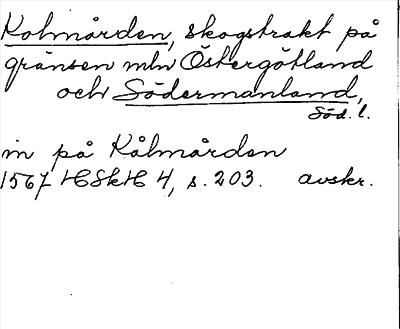 Kolmården, skogstrakt på
gränsen mln Östergötland
och Södermanland,
Söd. l.
in på Kålmården
1567 HSkH 4, s. 203. avskr.